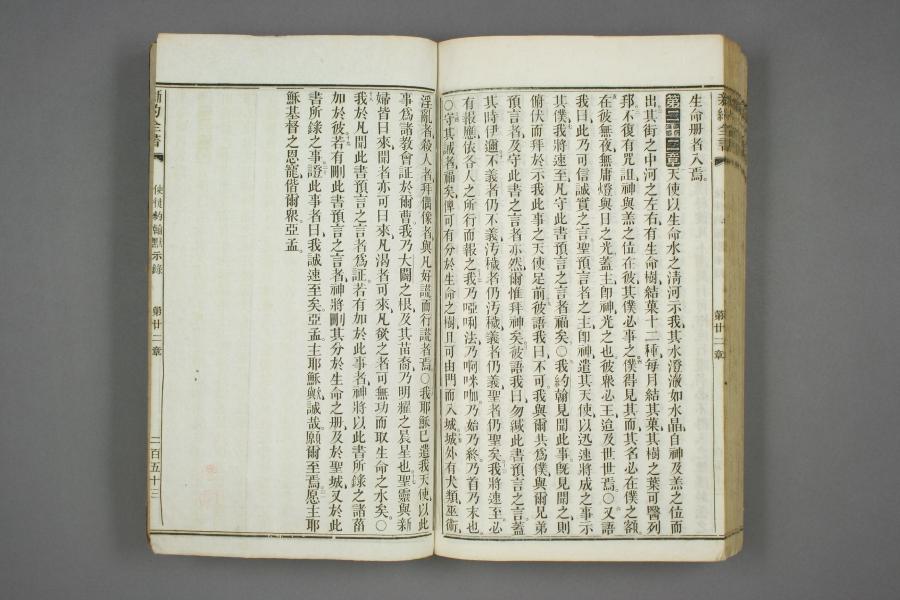 生命册者入焉。
第二十二章天使以生命水之淸河示我其水澄澈如水晶自神及羔之位而
出其街之中河之左右有生命樹結菓十二種每月結其菓其樹之葉可醫列
邦不復有咒詛神與羔之位在彼其僕必事之僕得見其面其名必在僕之額
在彼無夜無庸燈與日之光蓋主卽神光之也彼衆必王迨及世世焉○又語
我曰此乃可信誠實之言聖預言者之主卽神遣其天使以迅速將成之事示
其僕我將速至凡守此書預言之言者福矣○我約翰見聞此事旣見聞之則
俯伏而拜於示我此事之天使足前彼語我曰不可我與爾共爲僕與爾兄弟
預言者及守此書之言者亦然爾惟拜神矣彼語我曰勿緘此書預言之言蓋
其時伊邇不義者仍不義汚穢者仍汚穢義者仍義聖者仍聖矣我將速至必
有報應依各人之所行而報之我乃啞唎法乃啊咪咖乃始乃終乃首乃末也
○守其誡者福矣俾可有分於生命之樹且可由門而入城城外有犬類巫術
淫亂者殺人者拜偶像者與凡好謊而行謊者焉○我耶穌已遣我天使以此
事爲諸教會証於爾曹我乃大闢之根及其苗裔乃明耀之晨星也聖靈與新
婦皆曰來聞者亦可曰來凡渴者可來凡欲之者可無功而取生命之水矣○
我於凡聞此書預言之言者爲証若有加於此事者神將以此書所錄之諸菑
加於彼若有刪此書預言之言者神將刪其分於生命之册及於聖城又於此
書所錄之事證此事者曰我誠速至矣亞孟主耶穌歟誠哉願爾至焉愿主耶
穌基督之恩寵偕爾衆亞孟
新約全書
使徒約翰默示錄
第廿二章
二百五十三
第廿二章